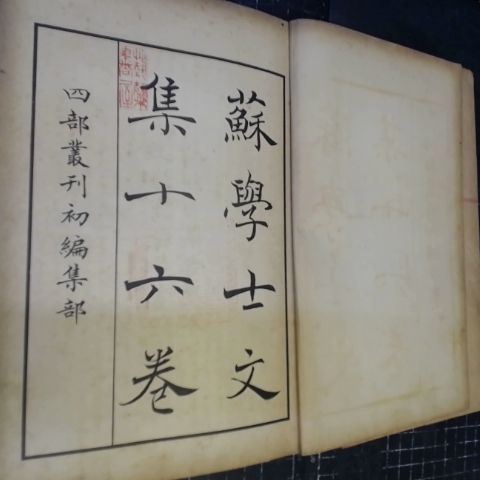 蘇學士文
集十六卷
四部叢刊初編集部